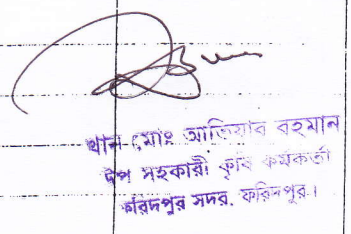 খান মোঃ আতিয়ার রহমান
উপ সহকারী কৃষি কর্মকর্তা
ফরিদপুর সদর, ফরিদপুর।